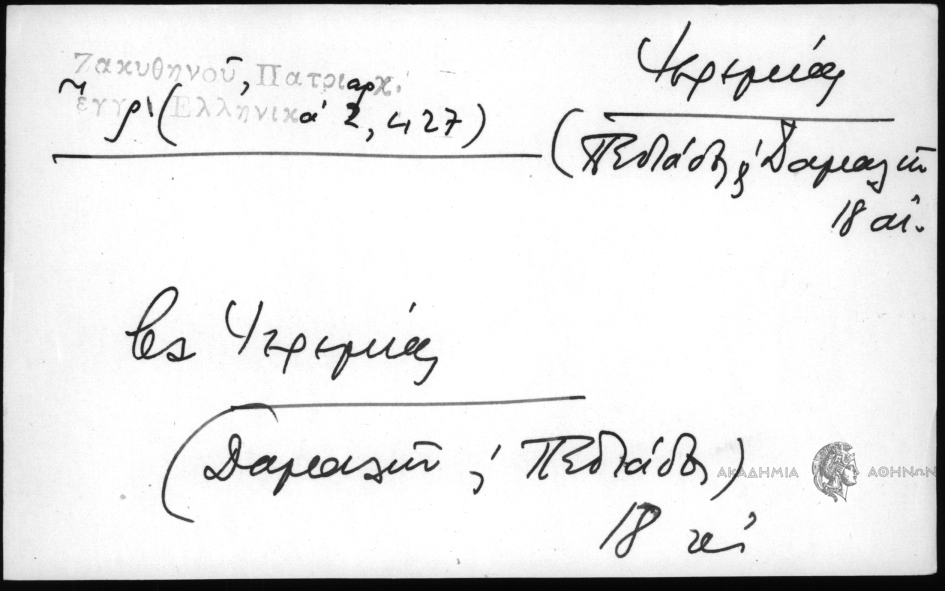 Ζακυθηνοῦ, Πατριαρχ.
ἔγγρ. (Ἑλληνικά 2, 427)
Ἱερεμίας
(Πεδιάδος ἤ Δαμαλῶν
18 αἰ.
Ἱερεμίας
(Δαμαλῶν ἤ Πεδιάδος)
18 αἰ
ΑΚΑΔΗΜΙΑ ΑΘΗΝΩΝ